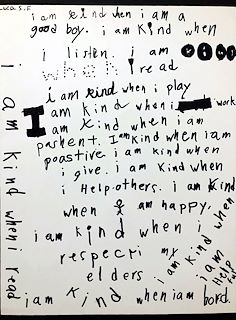 Luca S.F
i am kind when i am a
good boy. i am kind when
i listen. i am kind
when i read
i am kind when i play
I am kind when i work
am kind when i am
pashent. I am kind when i am
poastive i am kind when
i give. i am kind when
i Help others. i am kind
when i am happy.
i am kind when i
respect my
elders
i am kind when i am
Helpful
i am kind when i am bord.
i am kind when i read